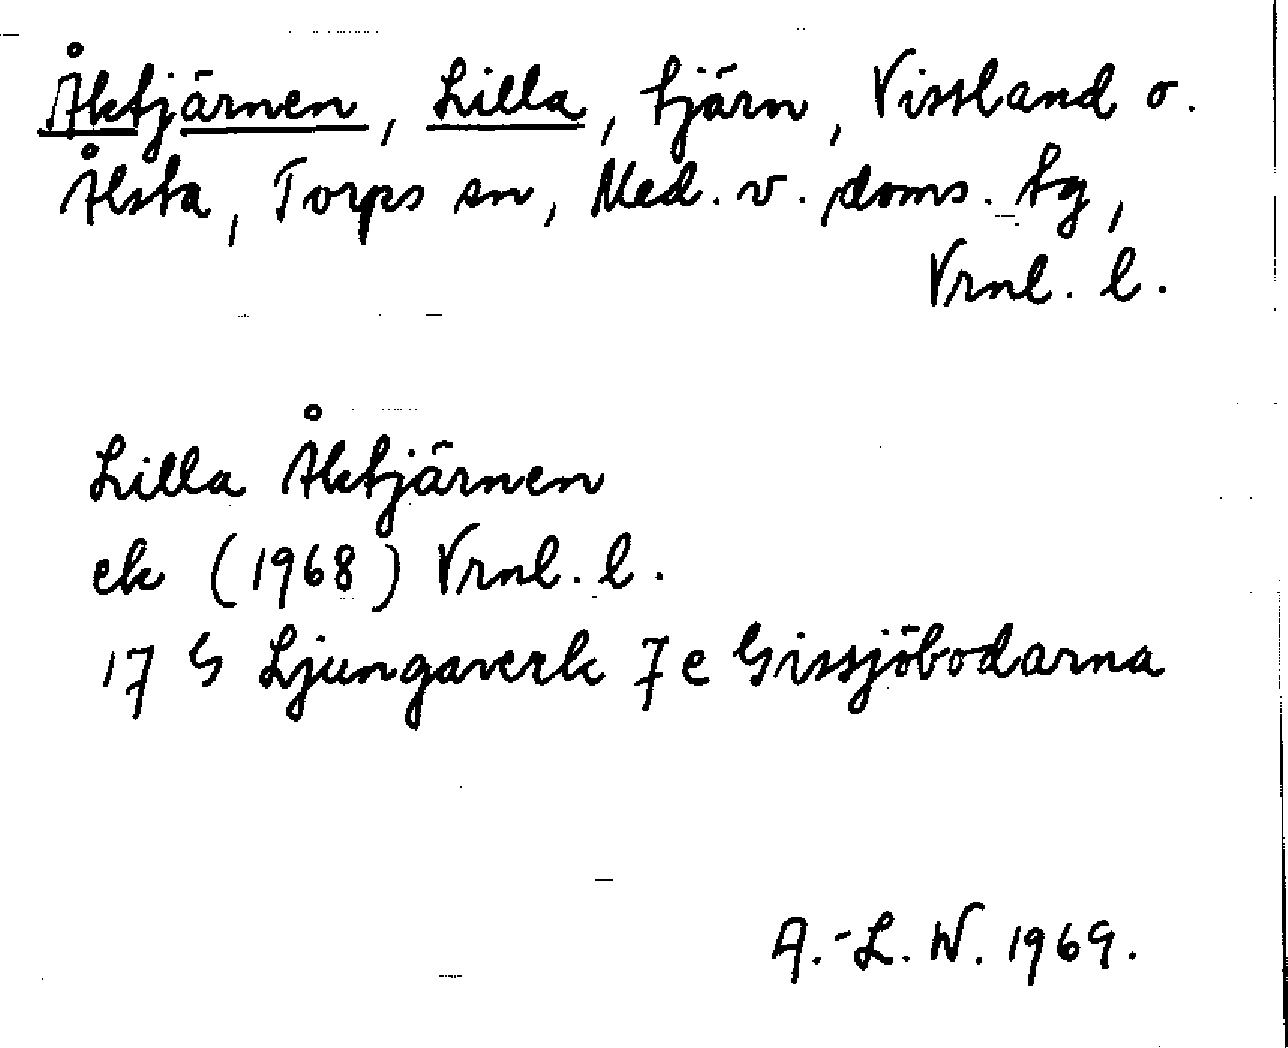 Åktjärnen, Lilla, tjärn, Vissland o.
Ålsta, Torps sn, Med. v. doms. tg,
Vrnl. l.
Lilla Åktjärnen
ek (1968) Vrnl. l.
17 G Ljungaverk 7 e Gissjöbodarna
A.-L. W. 1969.